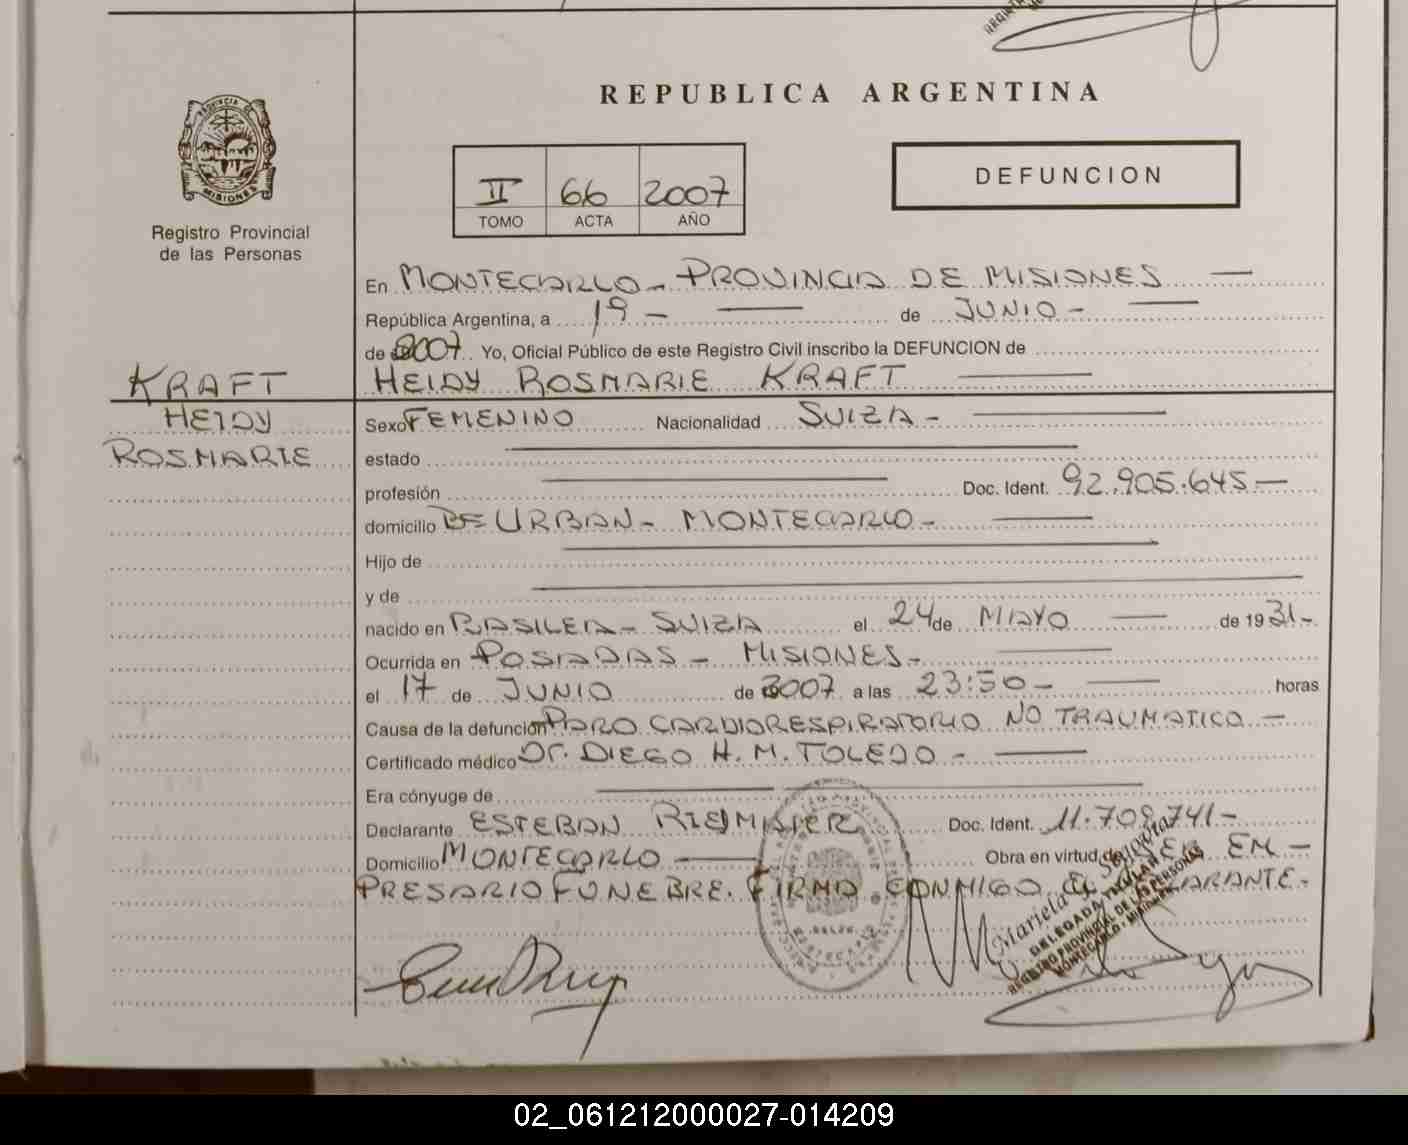 REPUBLICA ARGENTINA
PROVINCIA DE
MISIONES
Registro Provincial
de las Personas
II 66 2007
TOMO ACTA AÑO
DEFUNCION
En MONTECARLO - PROVINCIA DE MISIONES —
República Argentina, a 19 - — de JUNIO - —
de 2007 Yo, Oficial Público de este Registro Civil inscribo la DEFUNCION de
HEIDY ROSMARIE KRAFT —
KRAFT
HEIDY
ROSMARIE
Sexo FEMENINO Nacionalidad SUIZA - —
estado —
profesión — Doc. Ident. 92.905.645 —
domicilio BE URBAN - MONTECARLO - —
Hijo de —
y de —
nacido en BASILEA - SUIZA el 24 de MAYO — de 1931 -
Ocurrida en POSADAS - MISIONES - —
el 17 de JUNIO de 2007 a las 23:50 - — horas
Causa de la defunción PARO CARDIORESPIRATORIO NO TRAUMATICO —
Certificado médico Dr. DIEGO H. M. TOLEDO - —
Era cónyuge de —
Declarante ESTEBAN Doc. Ident. 11.709.741 -
Domicilio MONTECARLO — Obra en virtud de SER EM -
PRESARIO FUNEBRE. FIRMA CONMIGO EL DECLARANTE -
Mariela
DELEGADA TITULAR
REGISTRO PROVINCIAL DE LAS PERSONAS
MONTECARLO - MISIONES
02_061212000027-014209